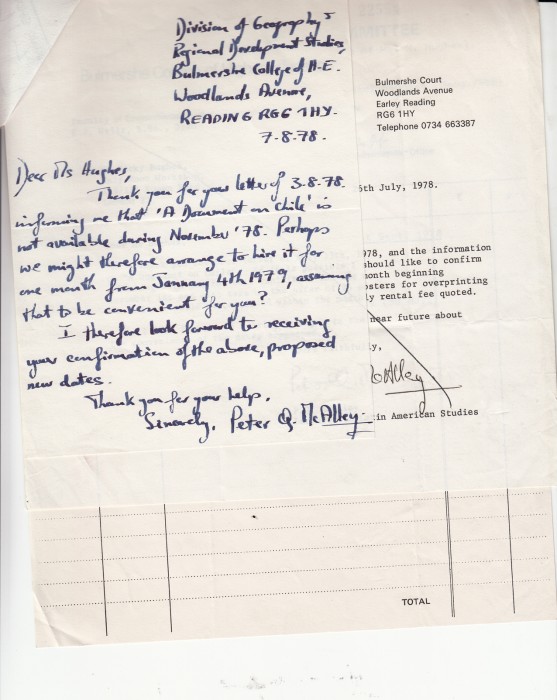 Division of Geography &
Regional Development Studies,
Bulmershe College of H.E.
Woodlands Avenue,
READING RG6 1HY.
7-8-78.
Dear Ms Hughes,
Thank you for your letter of 3-8-78.
informing me that 'A Document on Chile' is
not available during November '78. Perhaps
we might therefore arrange to hire it for
one month from January 4th 1979, assuming
that to be convenient for you?
I therefore look forward to receiving
your confirmation of the above, proposed
new dates.
Thank you for your help.
Sincerely, Peter Q. McAlley
Bulmershe Court
Woodlands Avenue
Earley Reading
RG6 1HY
Telephone 0734 663387
5th July, 1978.
978, and the information
should like to confirm
month beginning
osters for overprinting
ly rental fee quoted.
near future about
y,
in American Studies
TOTAL